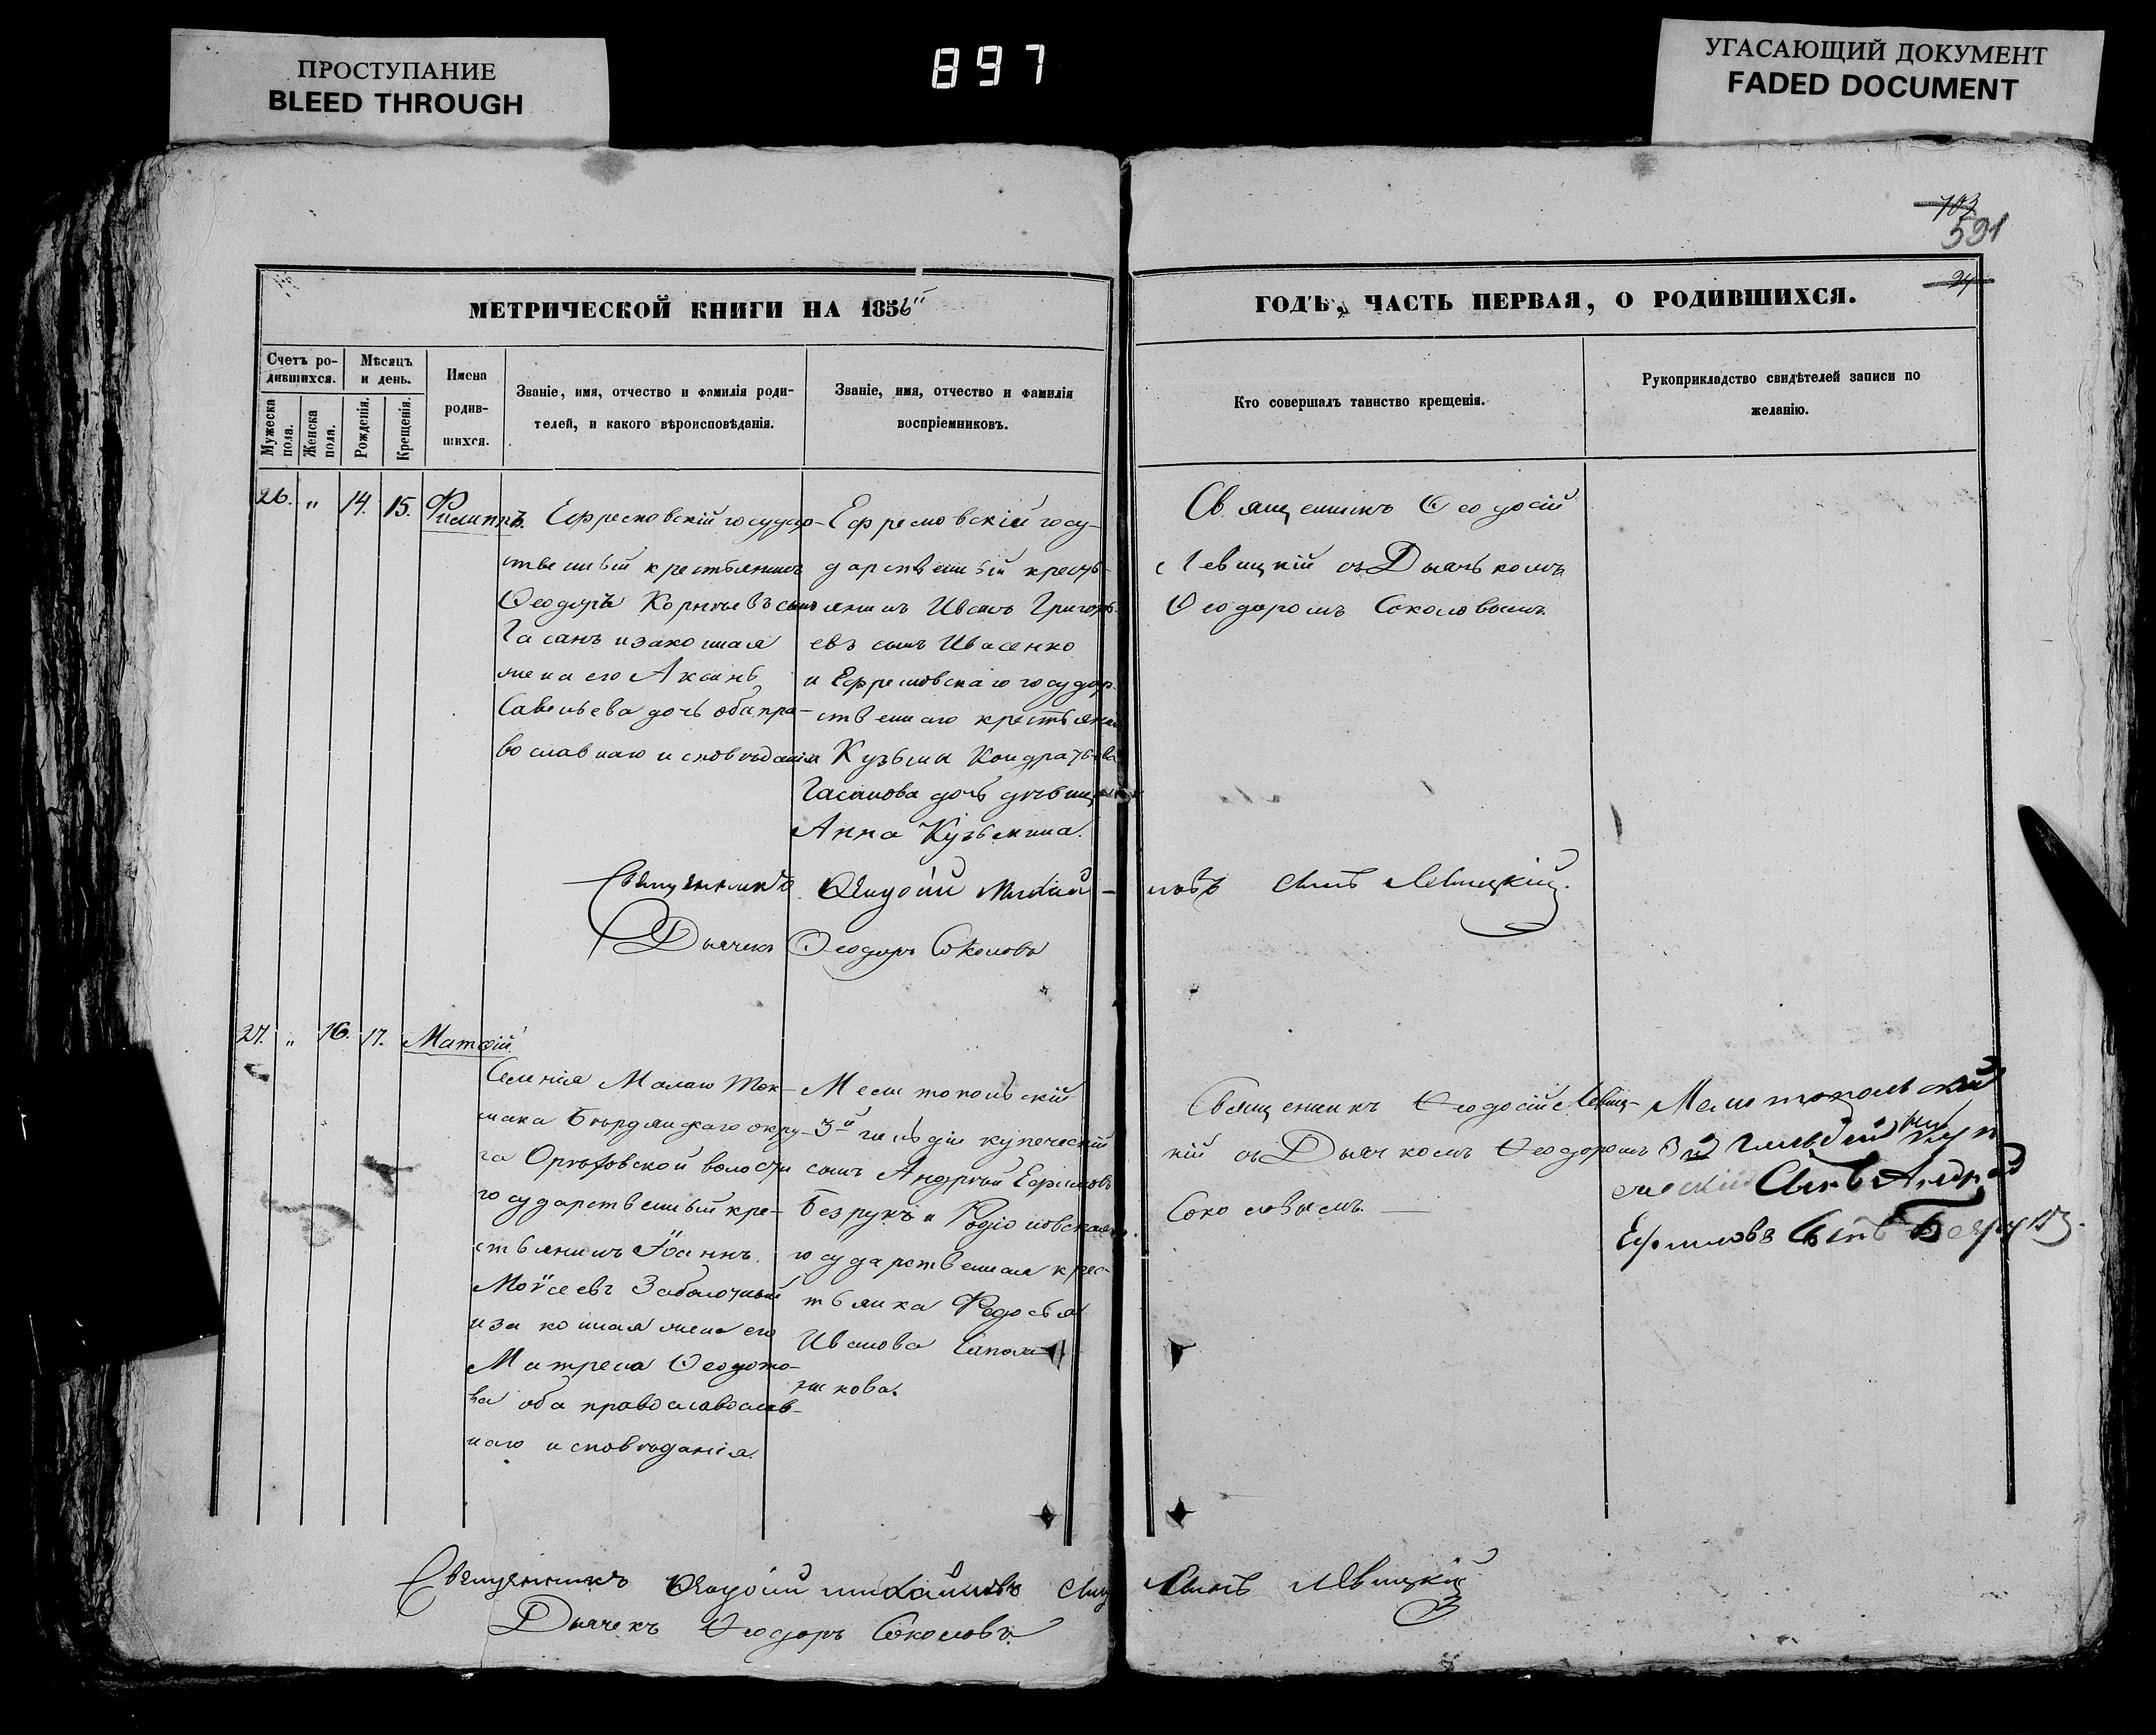 ПРОСТУПАНИЕ
BLEED THROUGH
897
УГАСАЮЩИЙ ДОКУМЕНТ
FADED DOCUMENT
103
591
24
МЕТРИЧЕСКОЙ КНИГИ НА 1856
ГОДЪ, ЧАСТЬ ПЕРВАЯ, О РОДИВШИХСЯ.
Счетъ ро-
дившихся.
Мѣсяцъ
и день.
Мужеска
пола.
Женска
пола.
Рожденія.
Крещенія.
Имена
родив-
шихся.
Званіе, имя, отчество и фамилія роди-
телей, и какого вѣроисповѣданія.
Званіе, имя, отчество и фамилія
воспріемниковъ.
Кто совершалъ таинство крещенія.
Рукоприкладство свидѣтелей записи по
желанію.
26. " 14. 15. Филиппъ.
Ефремовскій государ-
ственный крестьянинъ
Ѳеодоръ Корнѣевъ сынъ
Гасанъ и законная
жена его
Савельева дочь оба пра-
вославнаго исповѣданія
Ефремовскій госу-
дарственный кресть-
янинъ Иванъ Григорь-
евъ сынъ Ивасенко
и Ефремовскаго государ-
ственнаго крестьянина
Кузьмы Кондратьева
Гасанова дочь дѣвица
Анна Кузьмина.
Священникъ Ѳеодосій
Левицкій съ Дьячькомъ
Ѳеодоромъ Соколовымъ.
Священникъ Ѳеодосій Михай-ловъ сынъ Левицкій.
Дьячекъ Ѳеодоръ Соколовъ
27. " 16. 17. Матѳій.
Селенія Малаго Ток-
мака Бердянскаго окру-
га Орѣховской волости
государственный кре-
стьянинъ Іоаннъ
Моѵсеевъ Заболотный
и законная жена его
Матрена Ѳеодото-
ва оба православослав-
наго исповѣданія.
Мелитопольскій
3й гильдіи купеческій
сынъ Андрей Ефимовъ
Безрукъ и Родіоновская
государственная крес-
тьянка Федосья
Иванова Сапож-
никова.
Священникъ Ѳеодосій Левиц-
кій съ Дьячкомъ Ѳеодоромъ
Соколовымъ.
Мелитопольский
3й гильдии куп
ческий Сынъ Андрей
Ефимовъ Сынъ Безрукъ.
Священникъ Ѳеодосій Михайловъ Сынъ Левицкій
Дьячекъ Ѳеодоръ Соколовъ.